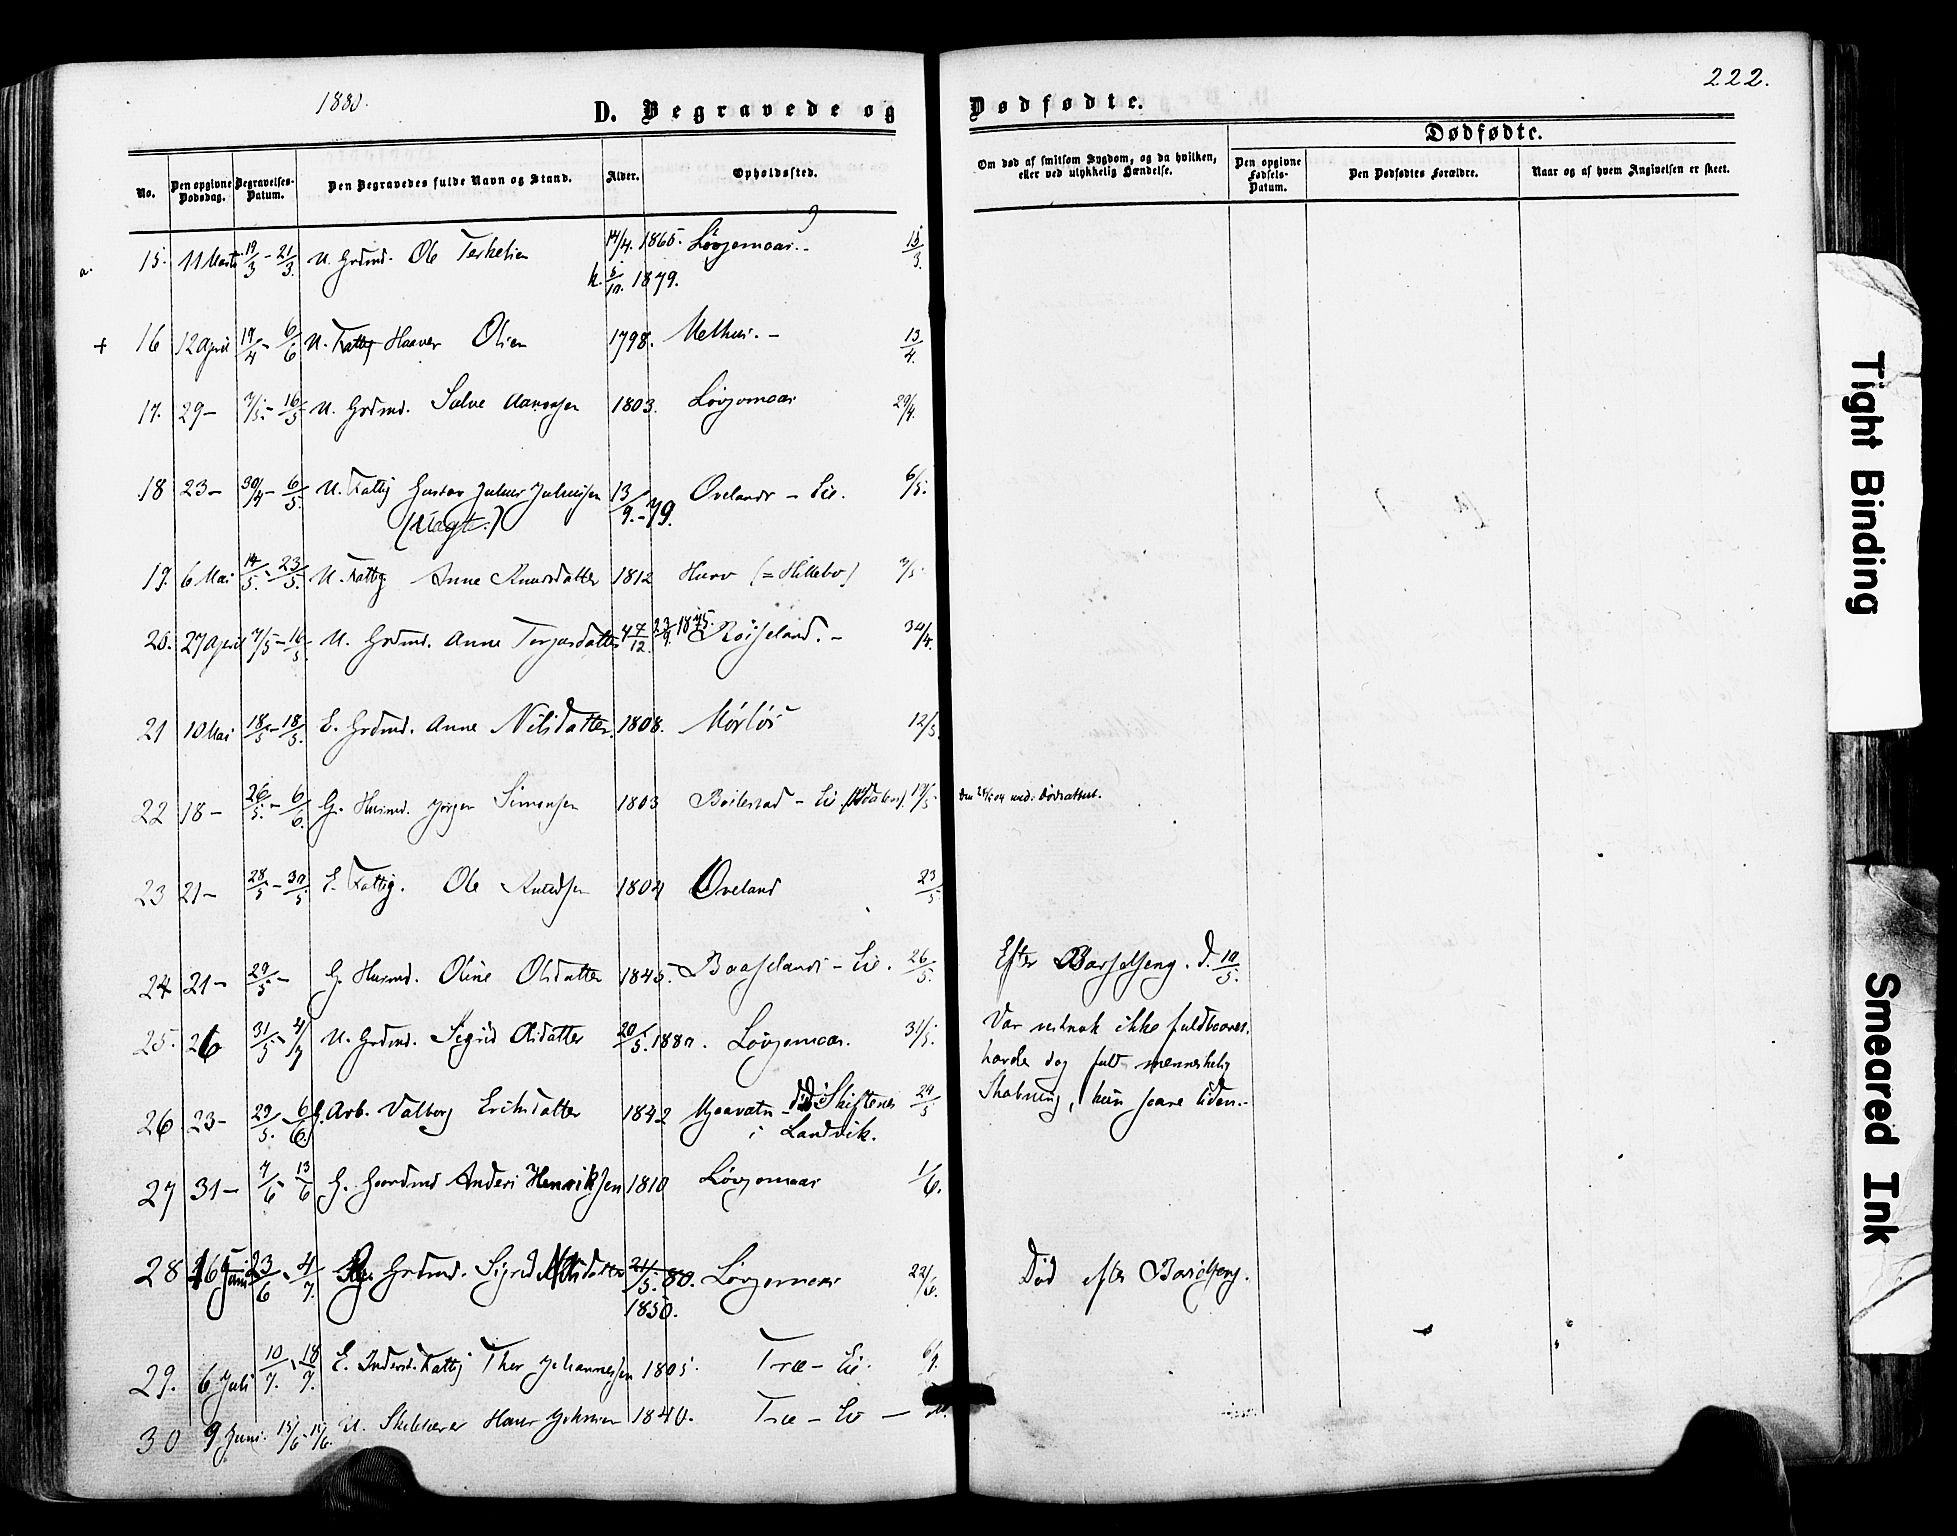 1880.
D. Begravede og
Dødfødte.
222.
Dødfødte.
No.
Den opgivne Dødsdag.
Begravelses-Datum.
Den Begravedes fulde Navn og Stand.
Alder.
Opholdssted.
Om død af smitsom Sygdom, og da hvilken, eller ved ulykkelig Hændelse.
Den opgivne Fødsels-Datum.
Den Dødfødtes Forældre.
Naar og af hvem Angivelsen er skeet.
a. 15. 11 Marts 19/3 - 21/3. U. Grdmd. Ole Terkelsen 14/4. 1865. Løvjomaas. 15/3.
5/10. 1879.
+ 16 12 April 19/4 - 6/6 U. Fattig Haaver Olsen 1798. 13/4.
17. 29 - 7/5. - 16/5 U. Grdmd. Salve Aanonsen 1803. Løvjomaas 29/4.
18 23 - 30/4 - 6/5. U. Fattig Gustav Julius Juliussen 13/9. - 79. Ovelands - Eie. 6/5.
19. 6 Mai 14/5. - 23/5. U. Fattig Anne Knudsdatter 1812 (= Hillebo) 7/5.
20. 27 April 7/5 - 16/5. U. Grdmd. Anne Terjesdatter 4 7/12. 23/9. 1875. Røiseland. -
21 10 Mai 18/5 - 18/5. E. Grdmd. Anne Nilsdatter. 1808. Mørfør 12/5.
22 18 - 26/5. - 6/6. G. Husmd. Jørgen Simonsen 1803 Beilestad - Eie 19/5. Dødsattest.
23 21 - 28/5 - 30/5 E. Fattig. Ole Knudsen 1804 Oveland 23/5.
24 21 - 29/5 - G. Husmd. Oline Olsdatter 1845. Baaselands - Eie. 26/5. Efter Barselseng. D. 10/5.
25. 26 31/5. - 4/7 U. Grdmd. Sigrid Olsdatter 20/5. 1880. Løvjomaas. 31/5. Var vistnok ikke fuldbaaret.
havde dog fuld menneskelig
Skabning, kun svare liden. -
26 23 - 29/5. - 6/6. G. Arb. Valborg Eriksdatter 1842 Mjaavatn - død i Skiftenes 24/5
i Landvik.
27 31 - 7/6 - 13/6 G. Gaardmd Anders Henriksen 1810 Løvjomaas 1/6.
28 16 Juni 23/6 - 4/7. Grdmd. Sigrid Nilsdatter 21/5. 80. Løvjomaas 22/6. Død efter Barselseng.
1850.
29. 6 Juli 10/7. - 18/7. E. Inderst. Fattig Thor Johannessen 1805. Træ - Eie.
30 9 Juni. 15/6 - U. Skibsfører Hans Johnsen 1840. Træ - Eie -
Tight Binding
Smeared Ink